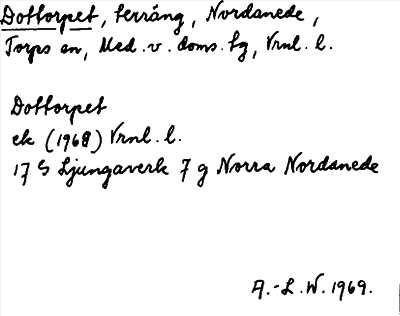 Dottorpet, terräng, Nordanede,
Torps sn, Med.v.doms.tg, Vrnl.l.
Dottorpet
ek (1968) Vrnl.l.
17 G Ljungaverk 7 g Norra Nordanede
A.-L.W.1969.